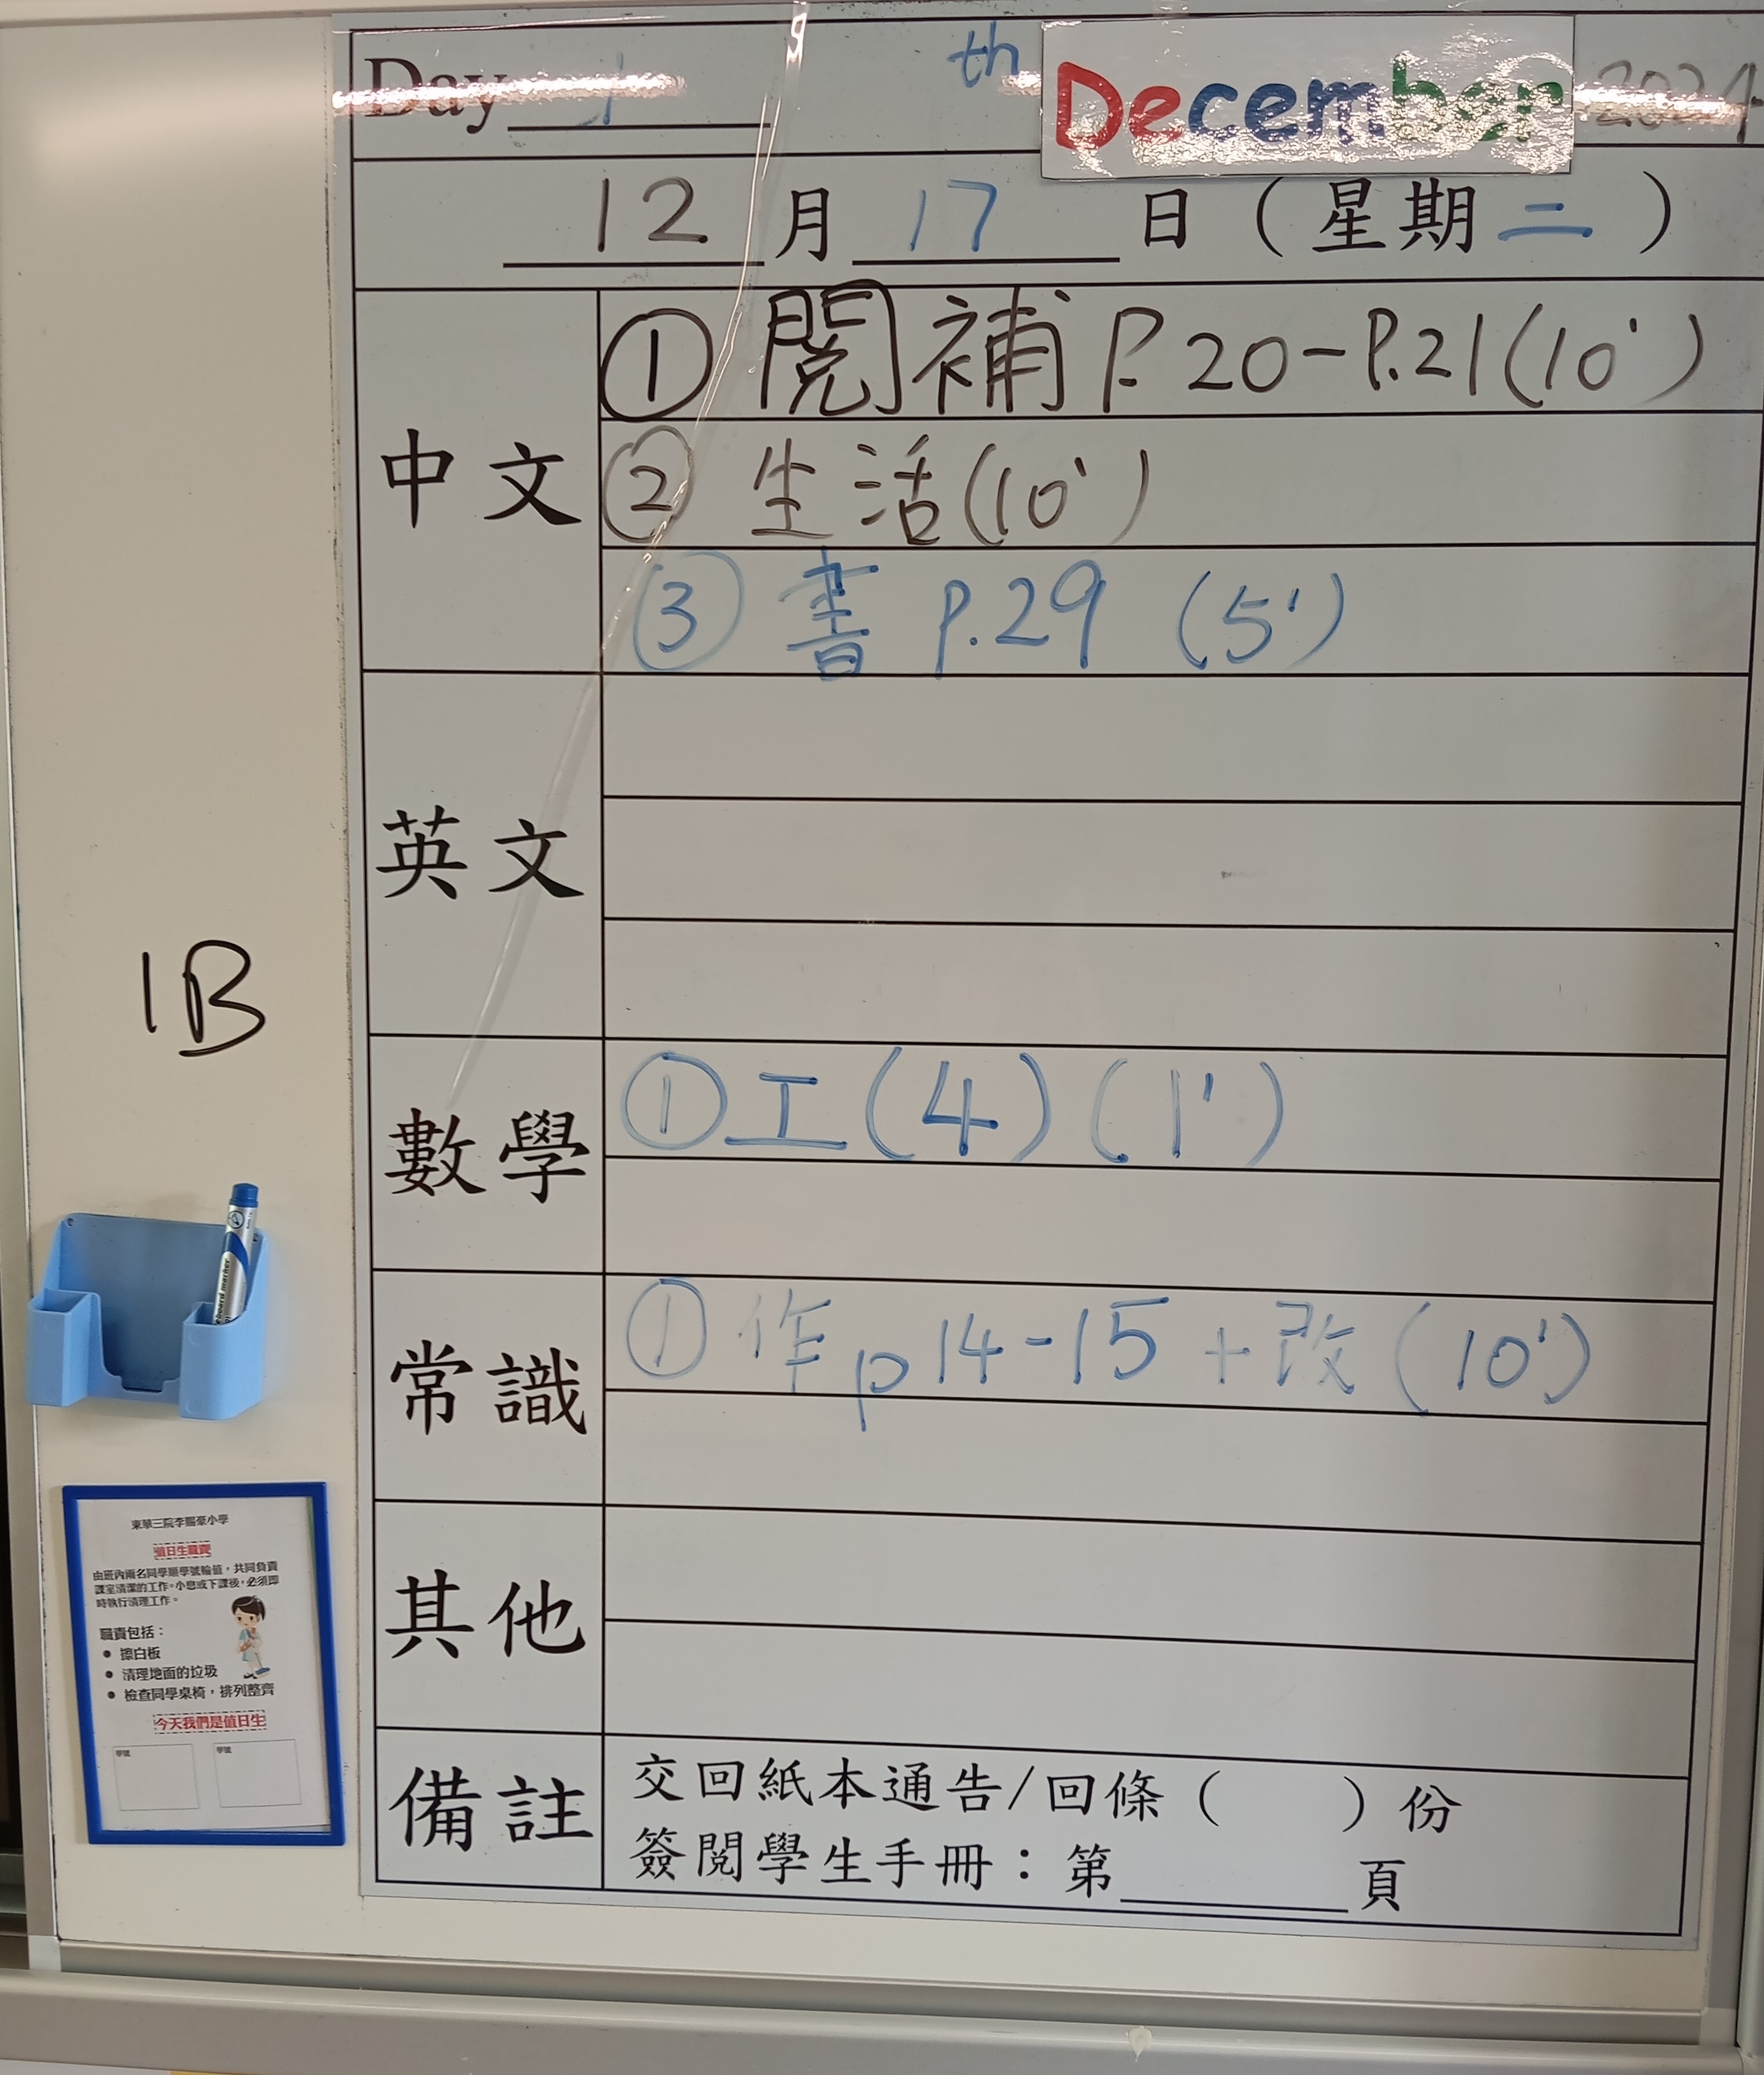 Day 1 th December 2024
12 月 17 日 ( 星期 二 )
中文
① 閱補 P.20-P.21(10')
② 生活(10')
③ 書 P.29 (5')
英文
數學
① 工(4)(1')
常識
① 作 p14-15+改(10')
其他
備註
交回紙本通告/回條 ( ) 份
簽閱學生手冊：第 頁
1B
東華三院李賜豪小學
值日生職責
由班內兩名同學順學號輪值，共同負責
課室清潔的工作。小息或下課後，必須即
時執行清理工作。
職責包括：
● 擦白板
● 清理地面的垃圾
● 檢查同學桌椅，排列整齊
今天我們是值日生
學號 學號